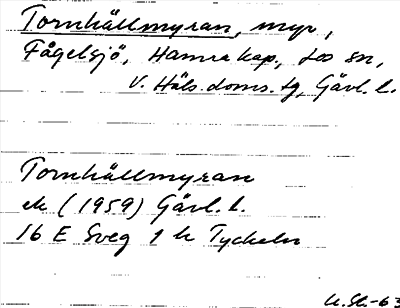 Tornhällmyran, myr,
Fågelsjö, Hamra kap., Los sn,
V. Häls. doms. tg, Gävl. l.
Tornhällmyran
ek (1959) Gävl. l.
16 E Sveg 1 h Tyckeln
U.Sh.-63